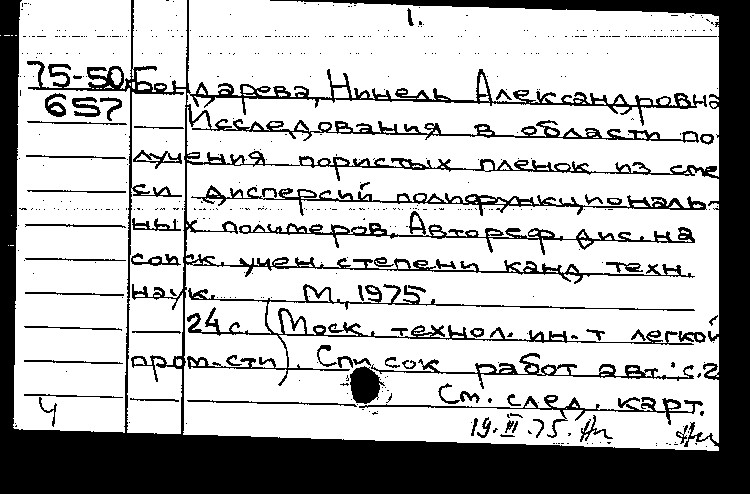 1.
75-50 Бондарева, Нинель Александровна
657 Исследования в области по-
лучения пористых пленок из сме-
си дисперсий полифункциональ-
ных полимеров. Автореф. дис. на
соиск. учен. степени канд. техн.
наук. М., 1975.
24 с. (Моск. технол. ин-т легкой
пром-сти). Список работ авт.: с. 2
См. след. карт.
4
19.III.75.